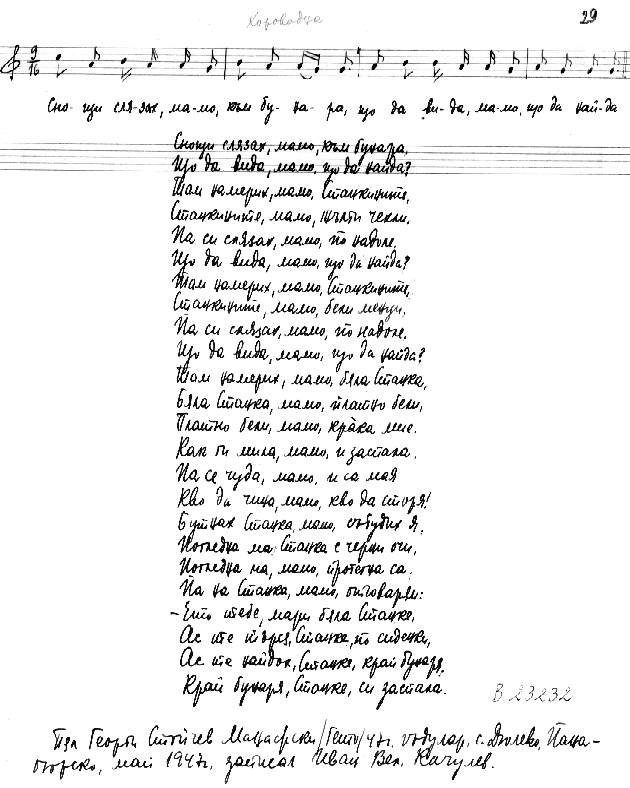 Хороводна
29
9
16
Сно- щи сля-зах, ма-мо, към бу- на- ра, що да ви-да, ма-мо, що да най-да
Снощи слязах, мамо, към бунара,
Що да вида, мамо, що да найда?
Там намерих, мамо, Станкините,
Станкините, мамо, жълти чехли.
Па си слязах, мамо, по надоле.
Що да вида, мамо, що да найда?
Там намерих, мамо, Станкините,
Станкините, мамо, бели менци,
Па си слязах, мамо, по надоле.
Що да вида, мамо, що да найда?
Там намерих, мамо, бяла Станка,
Бяла Станка, мамо, платно бели,
Платно бели, мамо, крака мие.
Как ги мила, мамо, и заспала.
Па се чуда, мамо, и са мая
Кво да чина, мамо, кво да сторя!
Бутнах Станка, мамо, събудих я,
Погледна ма Станка с черни очи,
Погледна ма, мамо, протегна са.
Па на Станка, мамо, отговаряи:
– Ето тебе, мари бяла Станке,
Ас те търся, Станке, по седенки,
Ас те найдох, Станке, край бунаря.
Край бунаря, Станке, си заспала.
В 23232
Пял Георги Стойчев Манафски /Гетю/ 47г. овчулар, с. Дюлево, Пана-
гюрско, май 1947г. записал Иван Вел. Качулев.